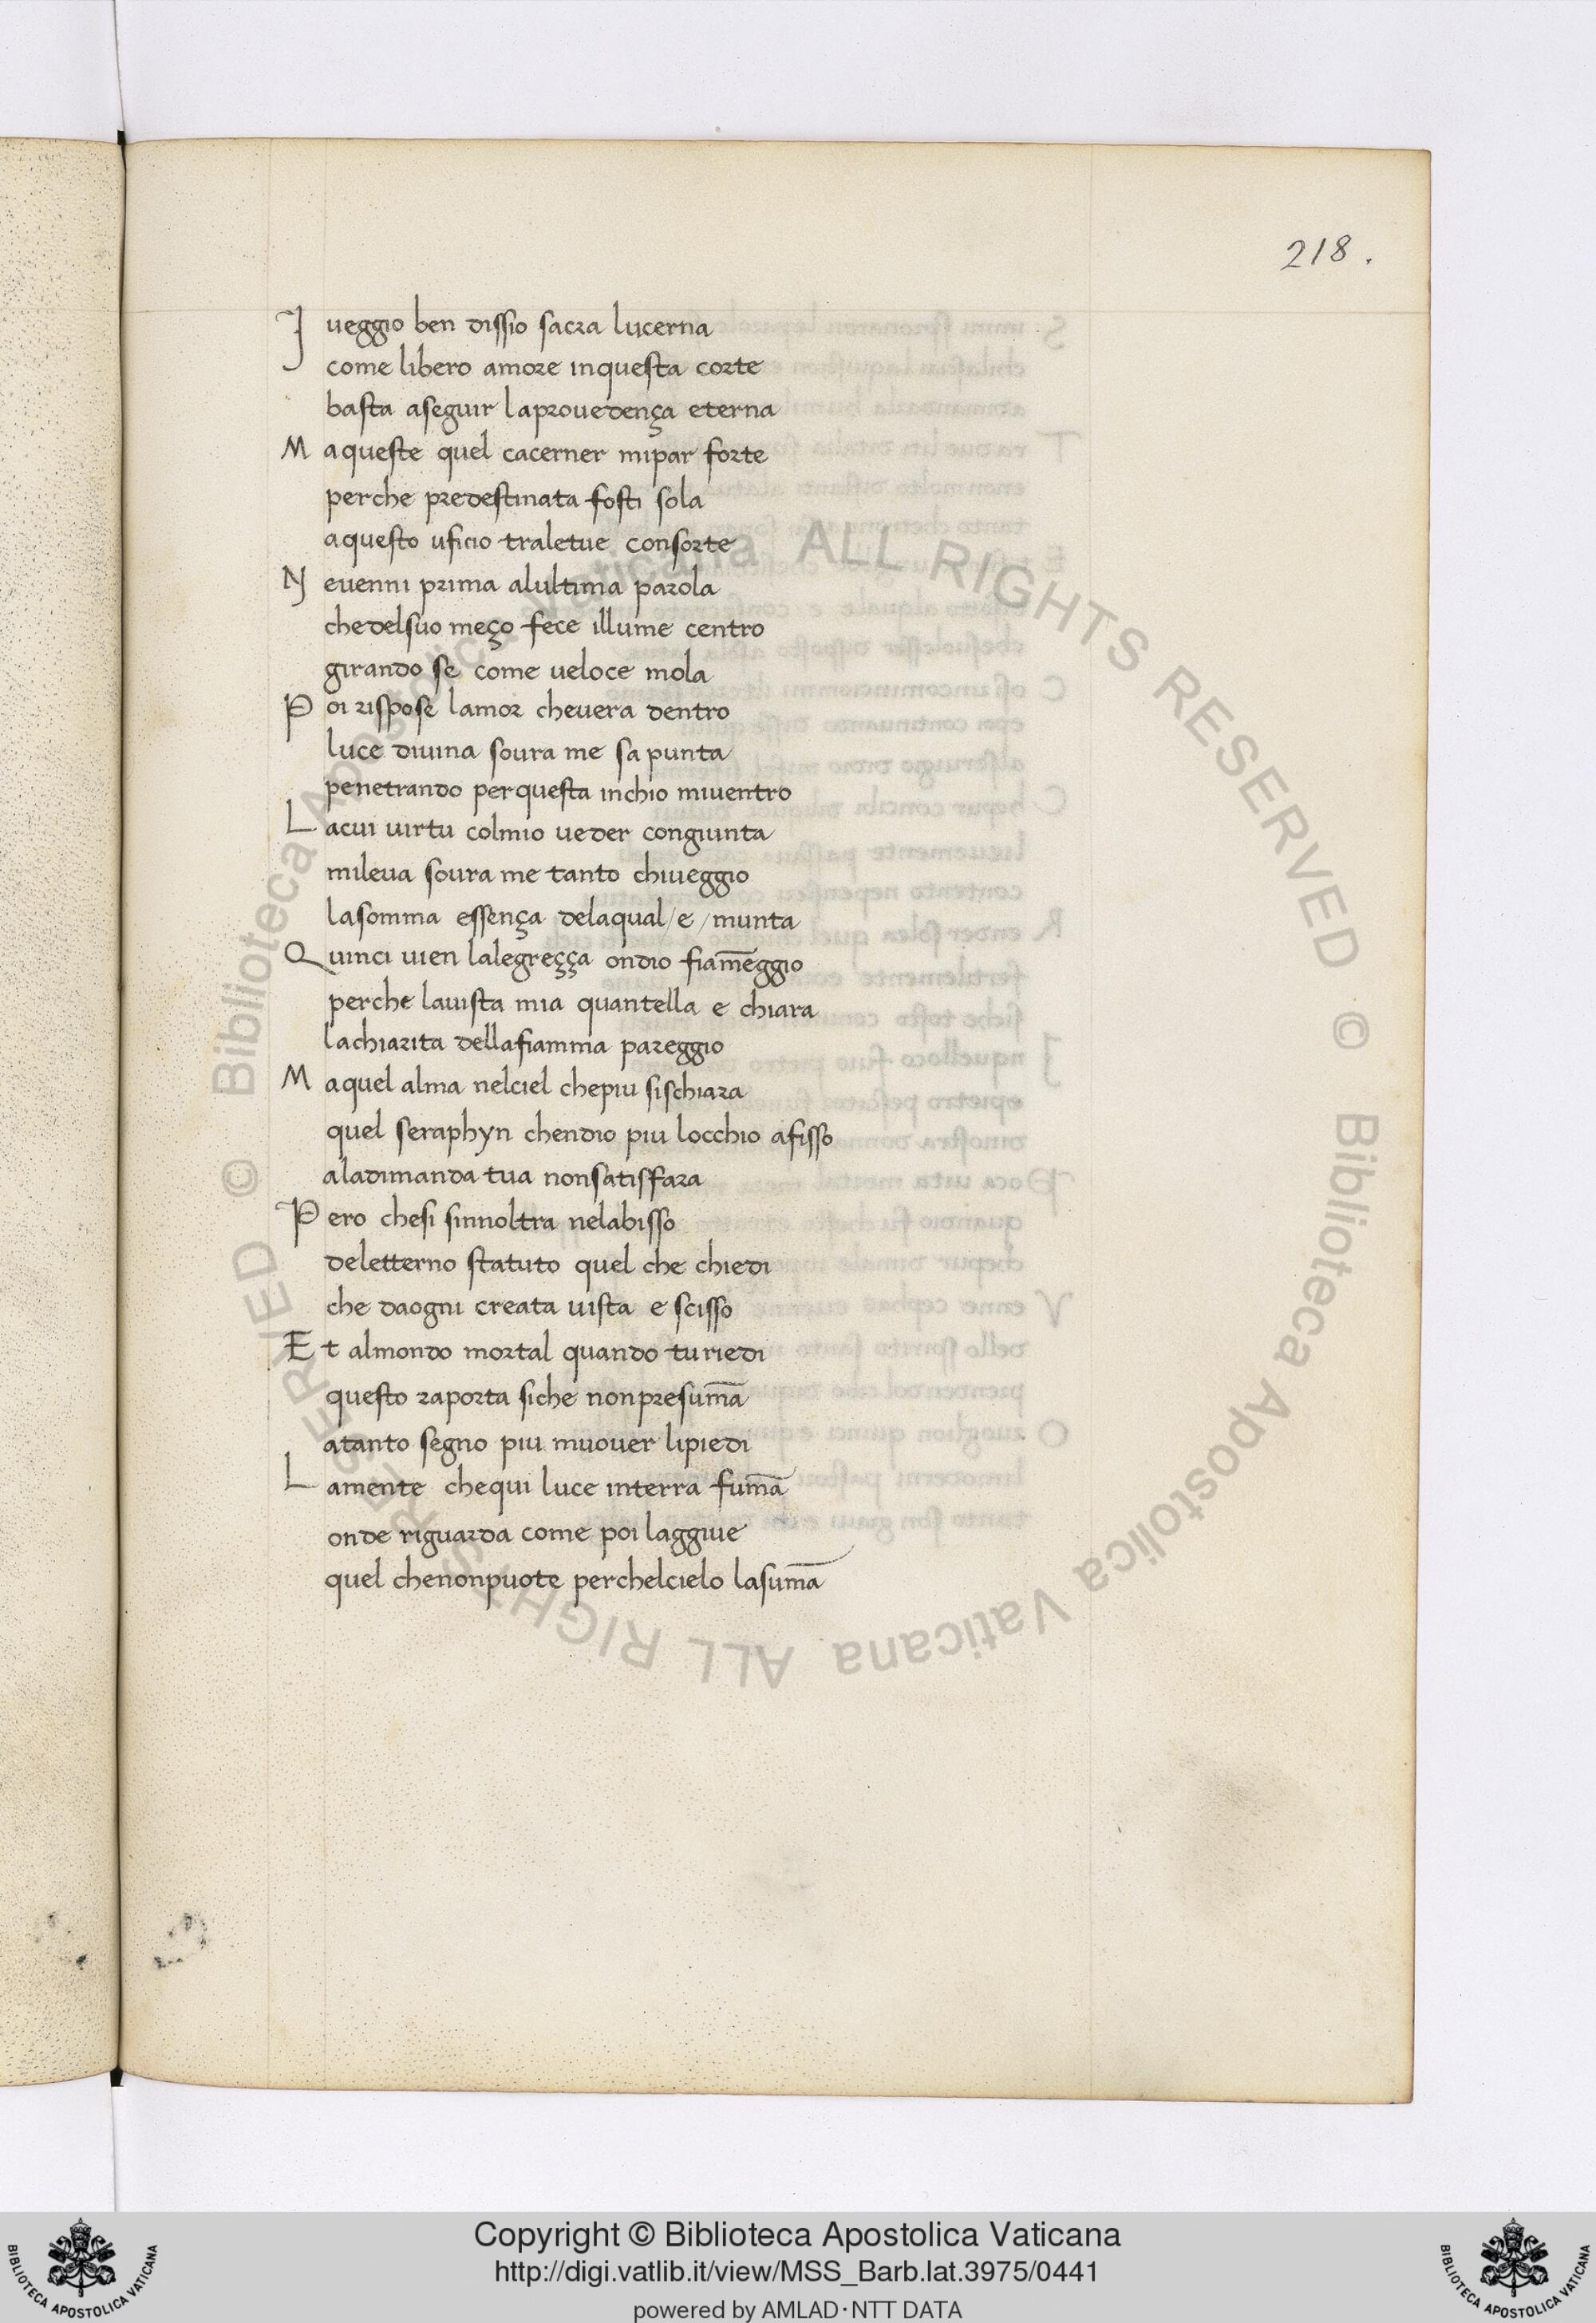 218.
J ueggio ben dissio sacra lucerna
come libero amore inquesta corte
basta aseguir laprouedença eterna
M aqueste quel cacerner mipar forte
perche predestinata fosti sola
aquesto uficio traletue consorte
N euenni prima alultima parola
chedelsuo meço fece illume centro
girando se come ueloce mola
P oi rispose lamor cheuera dentro
luce diuina soura me sa punta
penetrando perquesta inchio miuentro
L acui uirtu colmio ueder congiunta
mileua soura me tanto chiueggio
lasomma essença delaqual/e/munta
Q uinci uien lalegreçça ondio fiam̅eggio
perche lauista mia quantella e chiara
lachiarita dellafiamma pareggio
M aquel alma nelciel chepiu sischiara
quel seraphyn chendio piu locchio afisso
aladimanda tua nonsatisfara
P ero chesi sinnoltra nelabisso
deletterno statuto quel che chiedi
che daogni creata uista e scisso
E t almondo mortal quando turiedi
questo raporta siche nonpresum̅a
atanto segno piu muouer lipiedi
L amente chequi luce interra fum̅a
onde riguarda come poi laggiue
quel chenonpuote perchelcielo lasum̅a
© Biblioteca Apostolica Vaticana ALL RIGHTS RESERVED © Biblioteca Apostolica Vaticana ALL RIGHTS RESERVED
Copyright © Biblioteca Apostolica Vaticana
http://digi.vatlib.it/view/MSS_Barb.lat.3975/0441
powered by AMLAD·NTT DATA
BIBLIOTECA APOSTOLICA VATICANA
BIBLIOTECA APOSTOLICA VATICANA